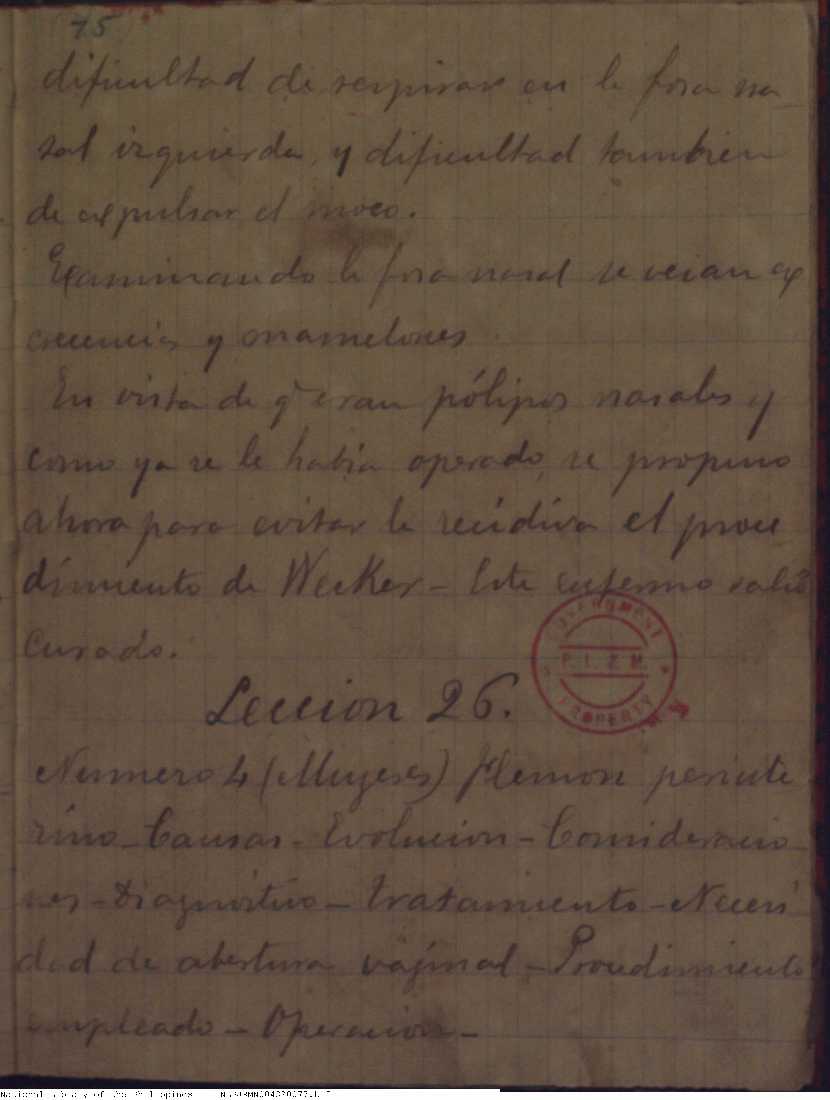 75
dificultad de respirar en la fosa na
sal izquierda, y dificultad tambien
de expulsar el moco.
Examinando la fosa nasal se veian ex
crecencias y mamelones
En vista de q' eran pólipos nasales y
como ya se le habia operado, se propuso
ahora para evitar la recidiva el proce
dimiento de Wecker - Este enfermo salió
curado.
GOVERNMENT
P.I. & M.
PROPERTY
Leccion 26.
Numero 4 (Mugeres) flemon periute
rino - Causas - Evolucion - Consideracio
nes - Diagnóstico - Tratamiento - Necesi
dad de abertura vajinal - Procedimiento
empleado - Operacion -
National Library of the Philippines